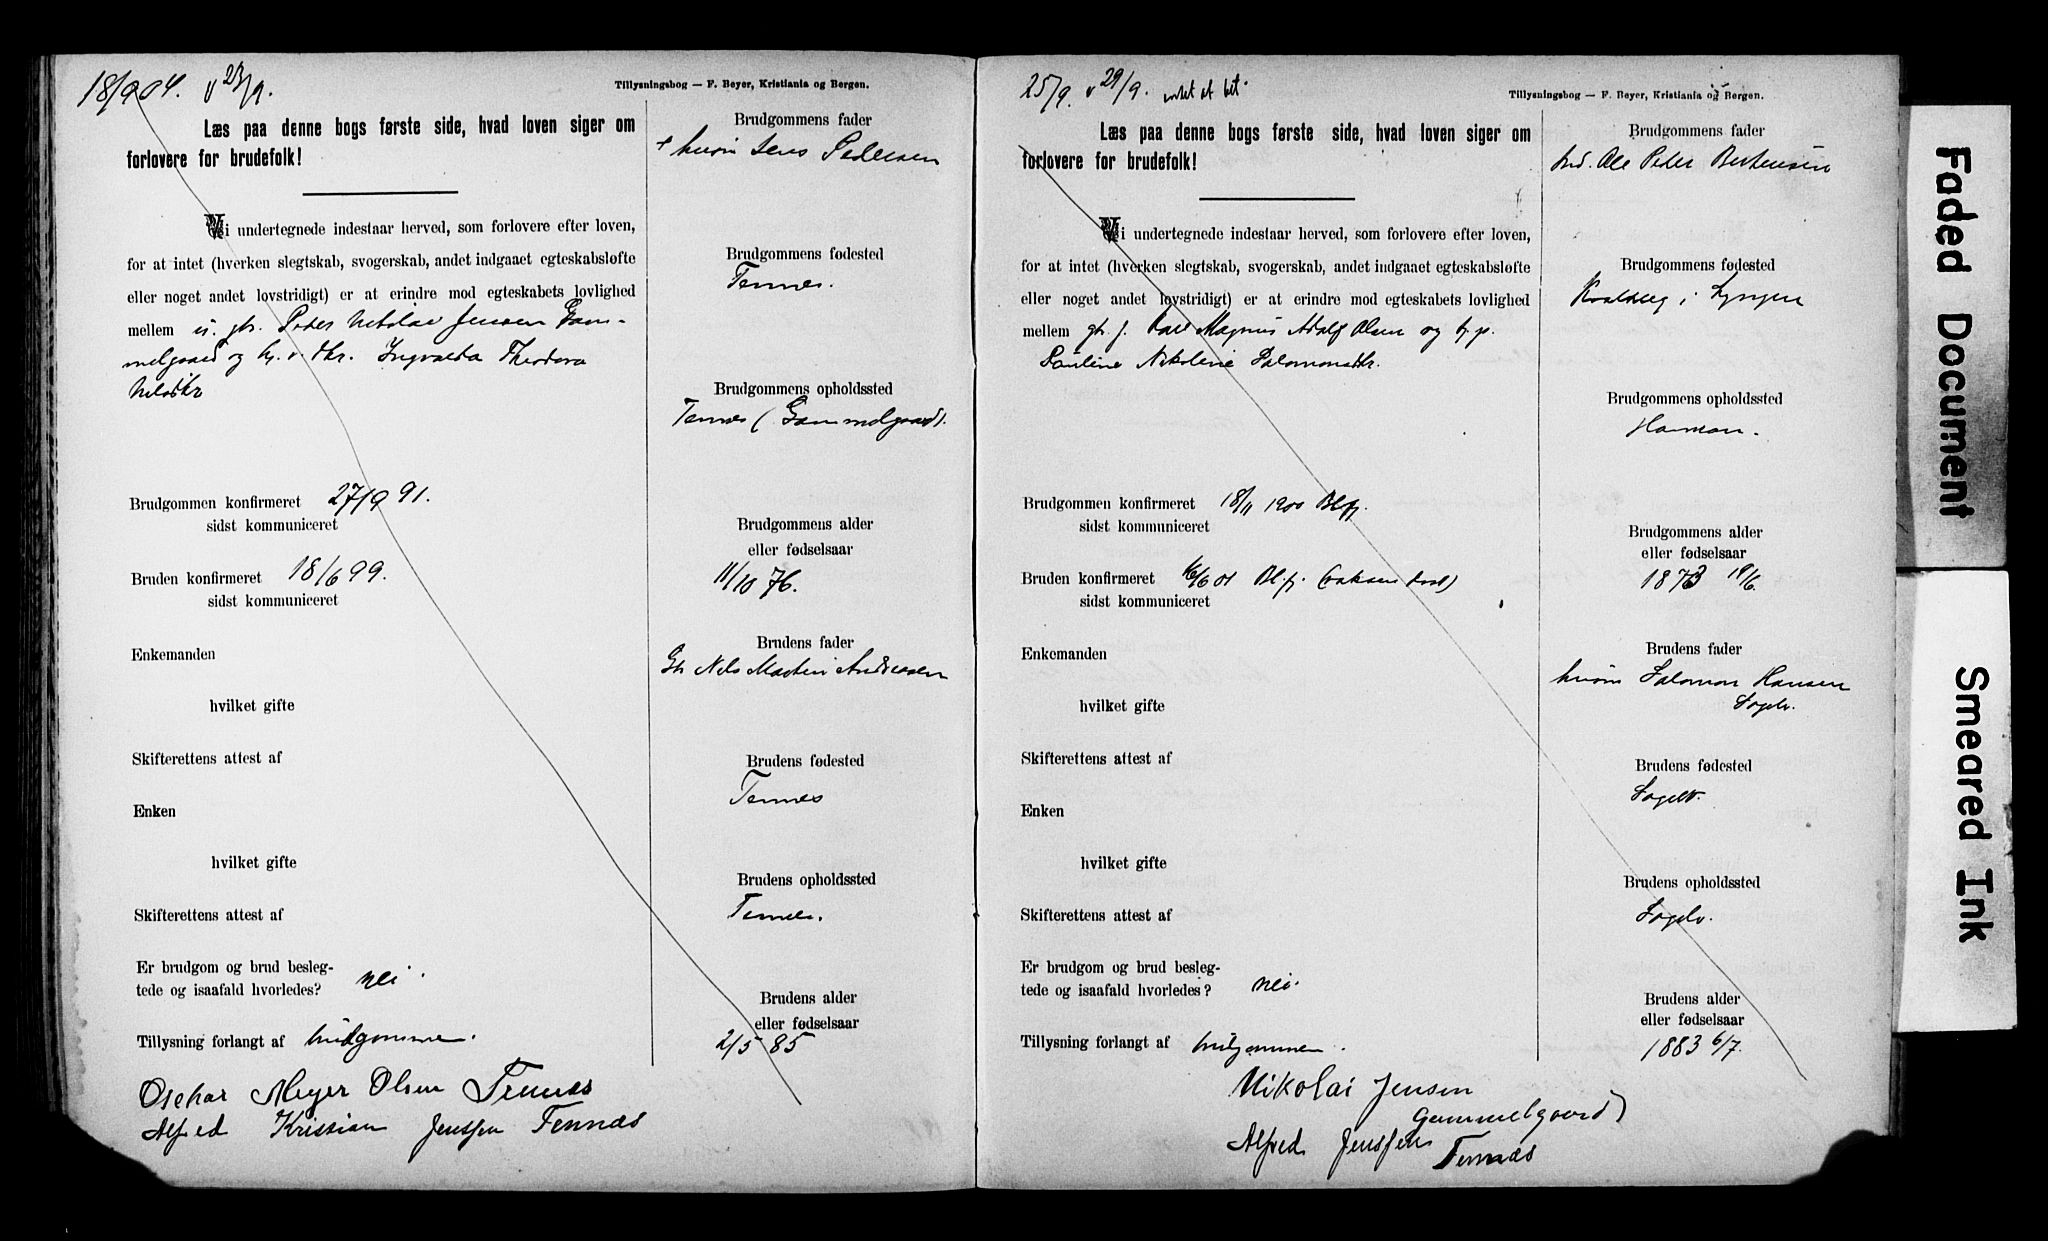 18/9 04. v 23/9.
Tillysningsbog — F. Beyer, Kristiania og Bergen.
Læs paa denne bogs første side, hvad loven siger om
forlovere for brudefolk!
Vi undertegnede indestaar herved, som forlovere efter loven,
for at intet (hverken slegtskab, svogerskab, andet indgaaet egteskabsløfte
eller noget andet lovstridigt) er at erindre mod egteskabets lovlighed
mellem u. gbr. Peder Nikolai Jensen Gam-
melgaard og hj. v. dtr. Ingvalda Theodora
Nilsdtr
Brudgommen konfirmeret 27/9 91.
sidst kommuniceret
Bruden konfirmeret 18/6 99.
sidst kommuniceret
Enkemanden
hvilket gifte
Skifterettens attest af
Enken
hvilket gifte
Skifterettens attest af
Er brudgom og brud beslegtede og isaafald hvorledes? nei.
Tillysning forlangt af brudgommen.
Oschar Meyer Olsen Tennes
Alfred Kristian Jenssen Tennæs
Brudgommens fader
+ husm Jens Pedersen
Brudgommens fødested
Tennes.
Brudgommens opholdssted
Tennes (Gammelgaard).
Brudgommens alder
eller fødselsaar
11/10 76.
Brudens fader
Gbr Nils Martin Andreasen
Brudens fødested
Tennes
Brudens opholdssted
Tennes.
Brudens alder
eller fødselsaar
2/5 85
25/9. v 29/9.
Tillysningsbog — F. Beyer, Kristiania og Bergen.
Læs paa denne bogs første side, hvad loven siger om
forlovere for brudefolk!
Vi undertegnede indestaar herved, som forlovere efter loven,
for at intet (hverken slegtskab, svogerskab, andet indgaaet egteskabsløfte
eller noget andet lovstridigt) er at erindre mod egteskabets lovlighed
mellem gbr. f. Carl Magnus Adolf Olsen og hj. p.
Pauline Nikoline Salomonsdtr.
Brudgommen konfirmeret 18/11 1900 Blfj.
sidst kommuniceret
Bruden konfirmeret 16/6 01 Bl.fj.
sidst kommuniceret
Enkemanden
hvilket gifte
Skifterettens attest af
Enken
hvilket gifte
Skifterettens attest af
Er brudgom og brud besleg-
tede og isaafald hvorledes? nei.
Tillysning forlangt af brudgommen.
Nikolai Jensen
Gammelgaard
Alfred Jenssen Tennæs
Brudgommens fader
Ole Peder Bertensen
Brudgommens fødested
i Lyngen
Brudgommens opholdssted
Brudgommens alder
eller fødselsaar
1873 19/6.
Brudens fader
husm Salomon Hansen
Sagelv.
Brudens fødested
Sagelv.
Brudens opholdssted
Sagelv.
Brudens alder
eller fødselsaar
1883 6/7.
Faded Document
Smeared Ink